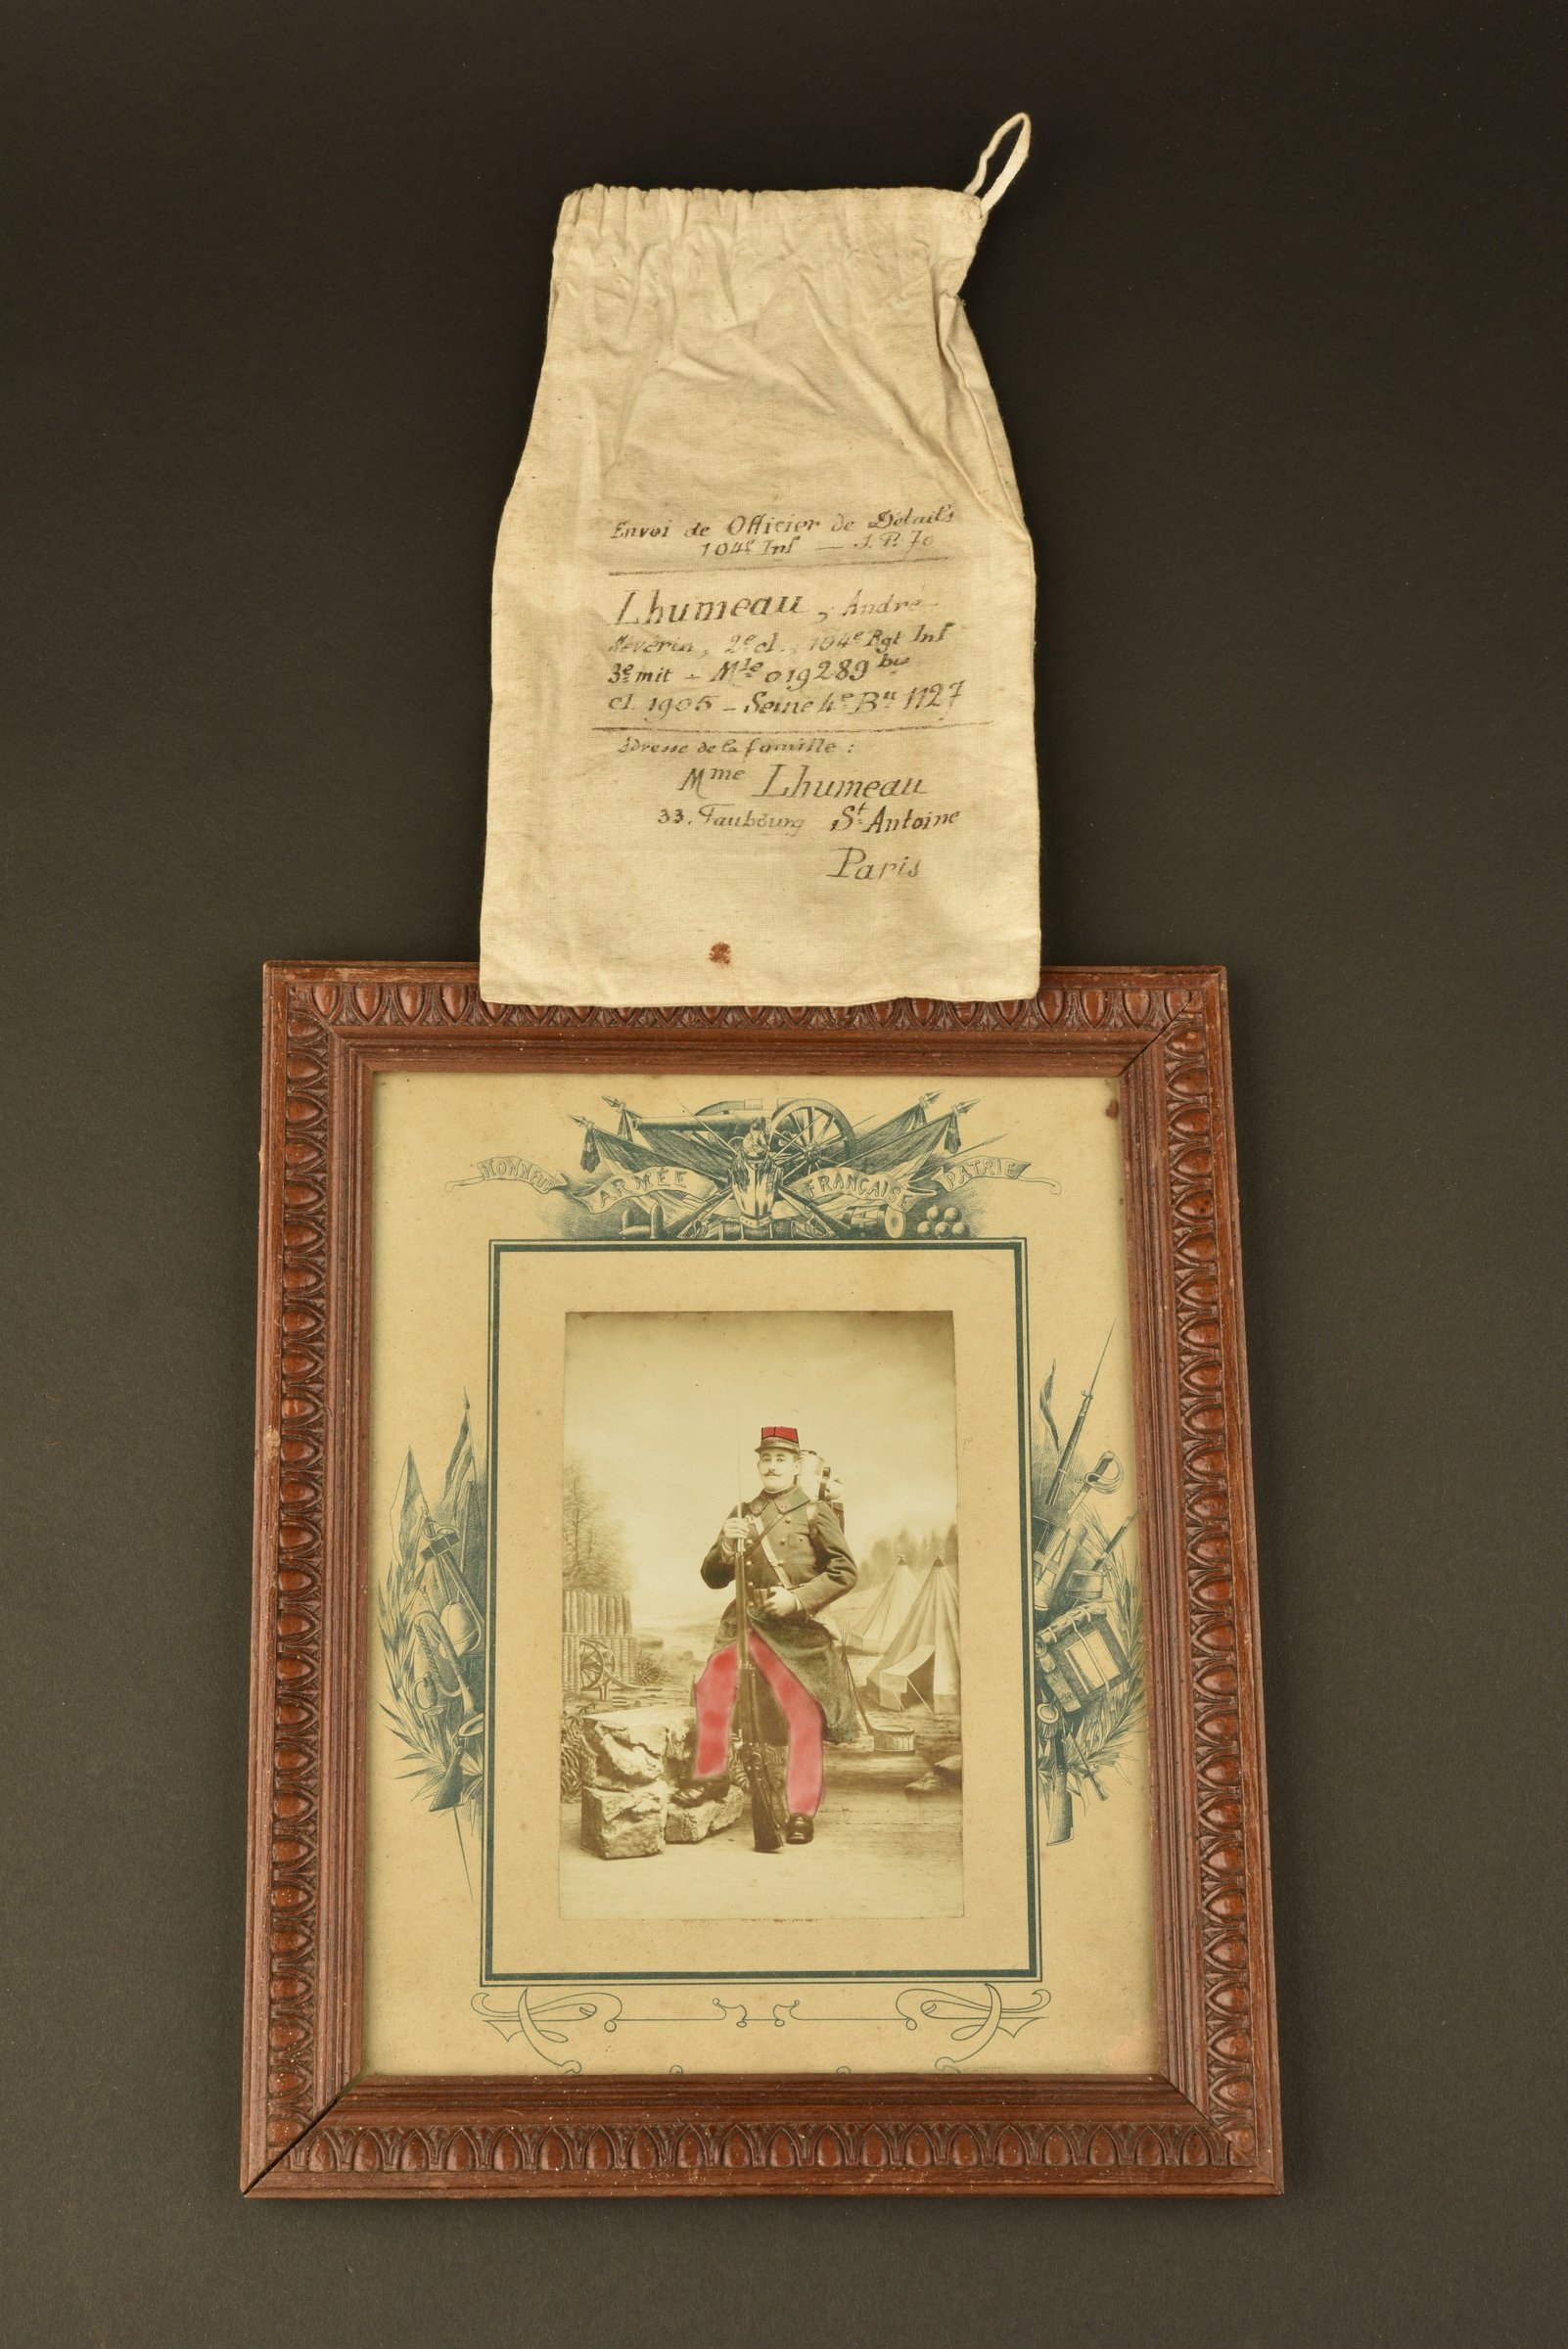 Envoi de Officier de Détails
104e Inf — S.P. 70
Lhumeau, André-
Séverin, 2e cl., 104e Rgt Inf
3e mit - Mle 019289 bis
cl. 1905 - Seine 4e Bau 1127
Adresse de la famille :
Mme Lhumeau
33, Faubourg St Antoine
Paris
HONNEUR ARMÉE FRANÇAISE PATRIE